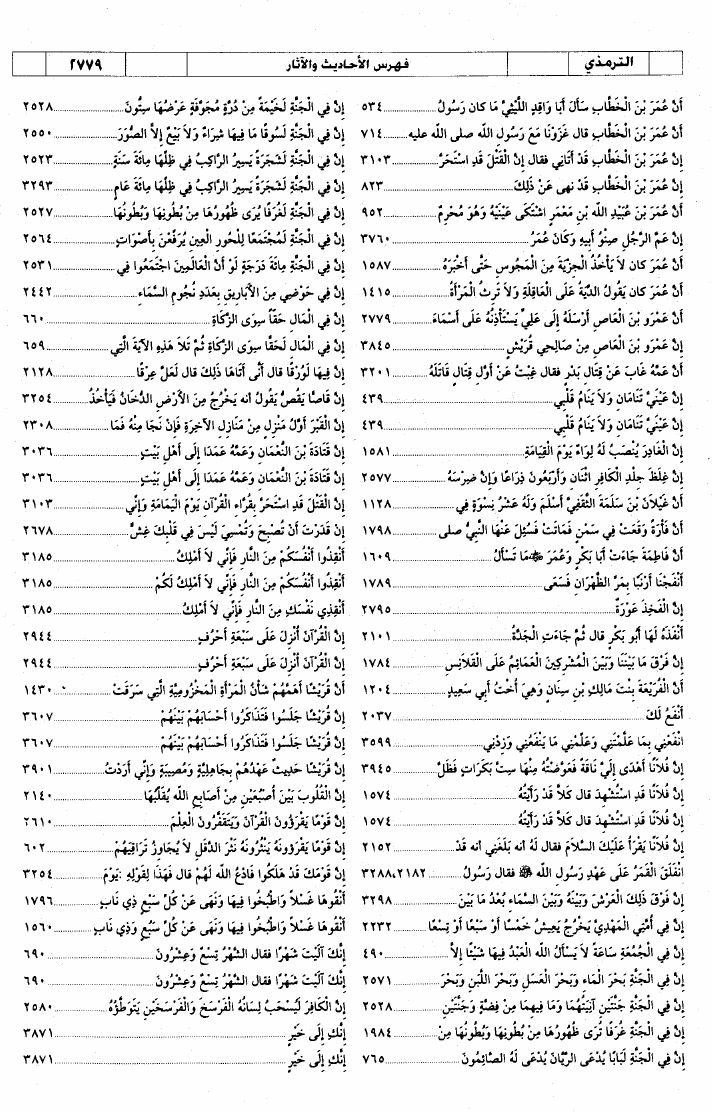 الترمذي
فهرس الأحاديث والآثار
٢٧٧٩
أَنَّ عُمَرَ بْنَ الْخَطَّابِ سَأَلَ أَبَا وَاقِدٍ اللَّيْثِيَّ مَا كان رَسُولُ ... ٥٣٤
أَنَّ عُمَرَ بْنَ الْخَطَّابِ قال غَزَوْنَا مَعَ رَسُولِ اللَّه صلى اللَّه عليه ... ٧١٤
إِنَّ عُمَرَ بْنَ الْخَطَّابِ قَدْ أَتَانِي فقال إِنَّ الْقَتْلَ قَدِ اسْتَحَرَّ ... ٣١٠٣
إِنَّ عُمَرَ بْنَ الْخَطَّابِ قَدْ نهى عَنْ ذَلِكَ ... ٨٢٣
أَنَّ عُمَرَ بْنَ عُبَيْدِ اللَّه بْنِ مَعْمَرٍ اشْتَكَى عَيْنَيْهِ وَهُوَ مُحْرِمٌ ... ٩٥٢
إِنَّ عَمَّ الرَّجُلِ صِنْوُ أَبِيهِ وَكَانَ عُمَرُ ... ٣٧٦٠
أَنَّ عُمَرَ كان لاَ يَأْخُذُ الْجِزْيَةَ مِنَ الْمَجُوسِ حَتَّى أَخْبَرَهُ ... ١٥٨٧
أَنَّ عُمَرَ كان يَقُولُ الدِّيَةُ عَلَى الْعَاقِلَةِ وَلاَ تَرِثُ الْمَرْأَةُ ... ١٤١٥
أَنَّ عَمْرَو بْنَ الْعَاصِ أَرْسَلَهُ إِلَى عَلِيٍّ يَسْتَأْذِنُهُ عَلَى أَسْمَاءَ ... ٢٧٧٩
إِنَّ عَمْرَو بْنَ الْعَاصِ مِنْ صَالِحِي قُرَيْشٍ ... ٣٨٤٥
أَنَّ عَمَّهُ غَابَ عَنْ قِتَالِ بَدْرٍ فقال غِبْتُ عَنْ أَوَّلِ قِتَالٍ قَاتَلَهُ ... ٣٢٠١
إِنَّ عَيْنَيَّ تَنَامَانِ وَلاَ يَنَامُ قَلْبِي ... ٤٣٩
إِنَّ عَيْنَيَّ تَنَامَانِ وَلاَ يَنَامُ قَلْبِي ... ٤٣٩
إِنَّ الْغَادِرَ يُنْصَبُ لَهُ لِوَاءٌ يَوْمَ الْقِيَامَةِ ... ١٥٨١
إِنَّ غِلَظَ جِلْدِ الْكَافِرِ اثْنَانِ وَأَرْبَعُونَ ذِرَاعًا وَإِنَّ ضِرْسَهُ ... ٢٥٧٧
أَنَّ غَيْلاَنَ بْنَ سَلَمَةَ الثَّقَفِيَّ أَسْلَمَ وَلَهُ عَشْرُ نِسْوَةٍ فِي ... ١١٢٨
أَنَّ فَأْرَةً وَقَعَتْ فِي سَمْنٍ فَمَاتَتْ فَسُئِلَ عَنْهَا النَّبِيُّ صلى ... ١٧٩٨
أَنَّ فَاطِمَةَ جَاءَتْ أَبَا بَكْرٍ وَعُمَرَ ﷺ مَا تَسْأَلُ ... ١٦٠٩
أَنْفَجْنَا أَرْنَبًا بِمَرِّ الظَّهْرَانِ فَسَعَى ... ١٧٨٩
إِنَّ الْفَخِذَ عَوْرَةٌ ... ٢٧٩٥
أَنْفَذَهُ لَهَا أَبُو بَكْرٍ قال ثُمَّ جَاءَتِ الْجَدَّةُ ... ٢١٠١
إِنَّ فَرْقَ مَا بَيْنَنَا وَبَيْنَ الْمُشْرِكِينَ الْعَمَائِمُ عَلَى الْقَلاَنِسِ ... ١٧٨٤
أَنَّ الْفُرَيْعَةَ بِنْتَ مَالِكِ بْنِ سِنَانٍ وَهِيَ أُخْتُ أَبِي سَعِيدٍ ... ١٢٠٤
أَنْفَعُ لَكَ ... ٢٠٣٧
انْفَعْنِي بِمَا عَلَّمْتَنِي وَعَلِّمْنِي مَا يَنْفَعُنِي وَزِدْنِي ... ٣٥٩٩
إِنَّ فُلاَنًا أَهْدَى إِلَيَّ نَاقَةً فَعَوَّضْتُهُ مِنْهَا سِتَّ بَكَرَاتٍ فَظَلَّ ... ٣٩٤٥
إِنَّ فُلاَنًا قَدِ اسْتُشْهِدَ قال كَلاَّ قَدْ رَأَيْتُهُ ... ١٥٧٤
إِنَّ فُلاَنًا قَدِ اسْتُشْهِدَ قال كَلاَّ قَدْ رَأَيْتُهُ ... ١٥٧٤
إِنَّ فُلاَنًا يَقْرَأُ عَلَيْكَ السَّلاَمَ فقال لَهُ أنه بَلَغَنِي أنه قَدْ ... ٢١٥٢
انْفَلَقَ الْقَمَرُ عَلَى عَهْدِ رَسُولِ اللَّه ﷺ فقال رَسُولُ ... ٣٢٨٨،٢١٨٢
إِنَّ فَوْقَ ذَلِكَ الْعَرْشَ وَبَيْنَهُ وَبَيْنَ السَّمَاءِ بُعْدُ مَا بَيْنَ ... ٣٢٩٨
إِنَّ فِي أُمَّتِي الْمَهْدِيَّ يَخْرُجُ يَعِيشُ خَمْسًا أَوْ سَبْعًا أَوْ تِسْعًا ... ٢٢٣٢
إِنَّ فِي الْجُمُعَةِ سَاعَةً لاَ يَسْأَلُ اللَّهَ الْعَبْدُ فِيهَا شَيْئًا إِلاَّ ... ٤٩٠
إِنَّ فِي الْجَنَّةِ بَحْرَ الْمَاءِ وَبَحْرَ الْعَسَلِ وَبَحْرَ اللَّبَنِ وَبَحْرَ ... ٢٥٧١
إِنَّ فِي الْجَنَّةِ جَنَّتَيْنِ آنِيَتُهُمَا وَمَا فِيهِمَا مِنْ فِضَّةٍ وَجَنَّتَيْنِ ... ٢٥٢٨
إِنَّ فِي الْجَنَّةِ غُرَفًا تُرَى ظُهُورُهَا مِنْ بُطُونِهَا وَبُطُونُهَا مِنْ ... ١٩٨٤
إِنَّ فِي الْجَنَّةِ لَبَابًا يُدْعَى الرَّيَّانَ يُدْعَى لَهُ الصَّائِمُونَ ... ٧٦٥
إِنَّ فِي الْجَنَّةِ لَخَيْمَةً مِنْ دُرَّةٍ مُجَوَّفَةٍ عَرْضُهَا سِتُّونَ ... ٢٥٢٨
إِنَّ فِي الْجَنَّةِ لَسُوقًا مَا فِيهَا شِرَاءٌ وَلاَ بَيْعٌ إِلاَّ الصُّوَرَ ... ٢٥٥٠
إِنَّ فِي الْجَنَّةِ لَشَجَرَةً يَسِيرُ الرَّاكِبُ فِي ظِلِّهَا مِائَةَ سَنَةٍ ... ٢٥٢٣
إِنَّ فِي الْجَنَّةِ لَشَجَرَةً يَسِيرُ الرَّاكِبُ فِي ظِلِّهَا مِائَةَ عَامٍ ... ٣٢٩٣
إِنَّ فِي الْجَنَّةِ لَغُرَفًا يُرَى ظُهُورُهَا مِنْ بُطُونِهَا وَبُطُونُهَا ... ٢٥٢٧
إِنَّ فِي الْجَنَّةِ لَمُجْتَمَعًا لِلْحُورِ الْعِينِ يُرَفِّعْنَ بِأَصْوَاتٍ ... ٢٥٦٤
إِنَّ فِي الْجَنَّةِ مِائَةَ دَرَجَةٍ لَوْ أَنَّ الْعَالَمِينَ اجْتَمَعُوا فِي ... ٢٥٣١
إِنَّ فِي حَوْضِي مِنَ الأَبَارِيقِ بِعَدَدِ نُجُومِ السَّمَاءِ ... ٢٤٤٢
إِنَّ فِي الْمَالِ حَقًّا سِوَى الزَّكَاةِ ... ٦٦٠
إِنَّ فِي الْمَالِ لَحَقًّا سِوَى الزَّكَاةِ ثُمَّ تَلاَ هَذِهِ الآيَةَ الَّتِي ... ٦٥٩
إِنَّ فِيهَا لَوُرْقًا قال أَنَّى أَتَاهَا ذَلِكَ قال لَعَلَّ عِرْقًا ... ٢١٢٨
إِنَّ قَاصًّا يَقُصُّ يَقُولُ أنه يَخْرُجُ مِنَ الأَرْضِ الدُّخَانُ فَيَأْخُذُ ... ٣٢٥٤
إِنَّ الْقَبْرَ أَوَّلُ مَنْزِلٍ مِنْ مَنَازِلِ الآخِرَةِ فَإِنْ نَجَا مِنْهُ فَمَا ... ٢٣٠٨
إِنَّ قَتَادَةَ بْنَ النُّعْمَانِ وَعَمَّهُ عَمَدَا إِلَى أَهْلِ بَيْتٍ ... ٣٠٣٦
إِنَّ قَتَادَةَ بْنَ النُّعْمَانِ وَعَمَّهُ عَمَدَا إِلَى أَهْلِ بَيْتٍ ... ٣٠٣٦
إِنَّ الْقَتْلَ قَدِ اسْتَحَرَّ بِقُرَّاءِ الْقُرْآنِ يَوْمَ الْيَمَامَةِ وَإِنِّي ... ٣١٠٣
إِنْ قَدَرْتَ أَنْ تُصْبِحَ وَتُمْسِيَ لَيْسَ فِي قَلْبِكَ غِشٌّ ... ٢٦٧٨
أَنْقِذُوا أَنْفُسَكُمْ مِنَ النَّارِ فَإِنِّي لاَ أَمْلِكُ ... ٣١٨٥
أَنْقِذُوا أَنْفُسَكُمْ مِنَ النَّارِ فَإِنِّي لاَ أَمْلِكُ لَكُمْ ... ٣١٨٥
أَنْقِذِي نَفْسَكِ مِنَ النَّارِ فَإِنِّي لاَ أَمْلِكُ ... ٣١٨٥
إِنَّ الْقُرْآنَ أُنْزِلَ عَلَى سَبْعَةِ أَحْرُفٍ ... ٢٩٤٤
إِنَّ الْقُرْآنَ أُنْزِلَ عَلَى سَبْعَةِ أَحْرُفٍ ... ٢٩٤٤
أَنَّ قُرَيْشًا أَهَمَّهُمْ شَأْنُ الْمَرْأَةِ الْمَخْزُومِيَّةِ الَّتِي سَرَقَتْ ... ١٤٣٠
إِنَّ قُرَيْشًا جَلَسُوا فَتَذَاكَرُوا أَحْسَابَهُمْ بَيْنَهُمْ ... ٣٦٠٧
إِنَّ قُرَيْشًا جَلَسُوا فَتَذَاكَرُوا أَحْسَابَهُمْ بَيْنَهُمْ ... ٣٦٠٧
إِنَّ قُرَيْشًا حَدِيثٌ عَهْدُهُمْ بِجَاهِلِيَّةٍ وَمُصِيبَةٍ وَإِنِّي أَرَدْتُ ... ٣٩٠١
إِنَّ الْقُلُوبَ بَيْنَ أُصْبُعَيْنِ مِنْ أَصَابِعِ اللَّه يُقَلِّبُهَا ... ٢١٤٠
إِنَّ قَوْمًا يَقْرَؤُونَ الْقُرْآنَ وَيَتَقَفَّرُونَ الْعِلْمَ ... ٢٦١٠
إِنَّ قَوْمًا يَقْرَؤُونَهُ يَنْثُرُونَهُ نَثْرَ الدَّقَلِ لاَ يُجَاوِزُ تَرَاقِيَهُمْ ... ٦٠٢
إِنَّ قَوْمَكَ قَدْ هَلَكُوا فَادْعُ اللَّه لَهُمْ قال فَهَذَا لِقَوْلِهِ :يَوْمَ ... ٣٢٥٤
أَنْقُوهَا غَسْلاً وَاطْبُخُوا فِيهَا وَنَهَى عَنْ كُلِّ سَبُعٍ ذِي نَابٍ ... ١٧٩٦
أَنْقُوهَا غَسْلاً وَاطْبُخُوا فِيهَا وَنَهَى عَنْ كُلِّ سَبُعٍ وَذِي نَابٍ ... ١٥٦٠
إِنَّكَ آلَيْتَ شَهْرًا فقال الشَّهْرُ تِسْعٌ وَعِشْرُونَ ... ٦٩٠
إِنَّكَ آلَيْتَ شَهْرًا فقال الشَّهْرُ تِسْعٌ وَعِشْرُونَ ... ٦٩٠
إِنَّ الْكَافِرَ لَيُسْحَبُ لِسَانُهُ الْفَرْسَخَ وَالْفَرْسَخَيْنِ يَتَوَطَّؤُهُ ... ٢٥٨٠
إِنَّكِ إِلَى خَيْرٍ ... ٣٨٧١
إِنَّكِ إِلَى خَيْرٍ ... ٣٨٧١